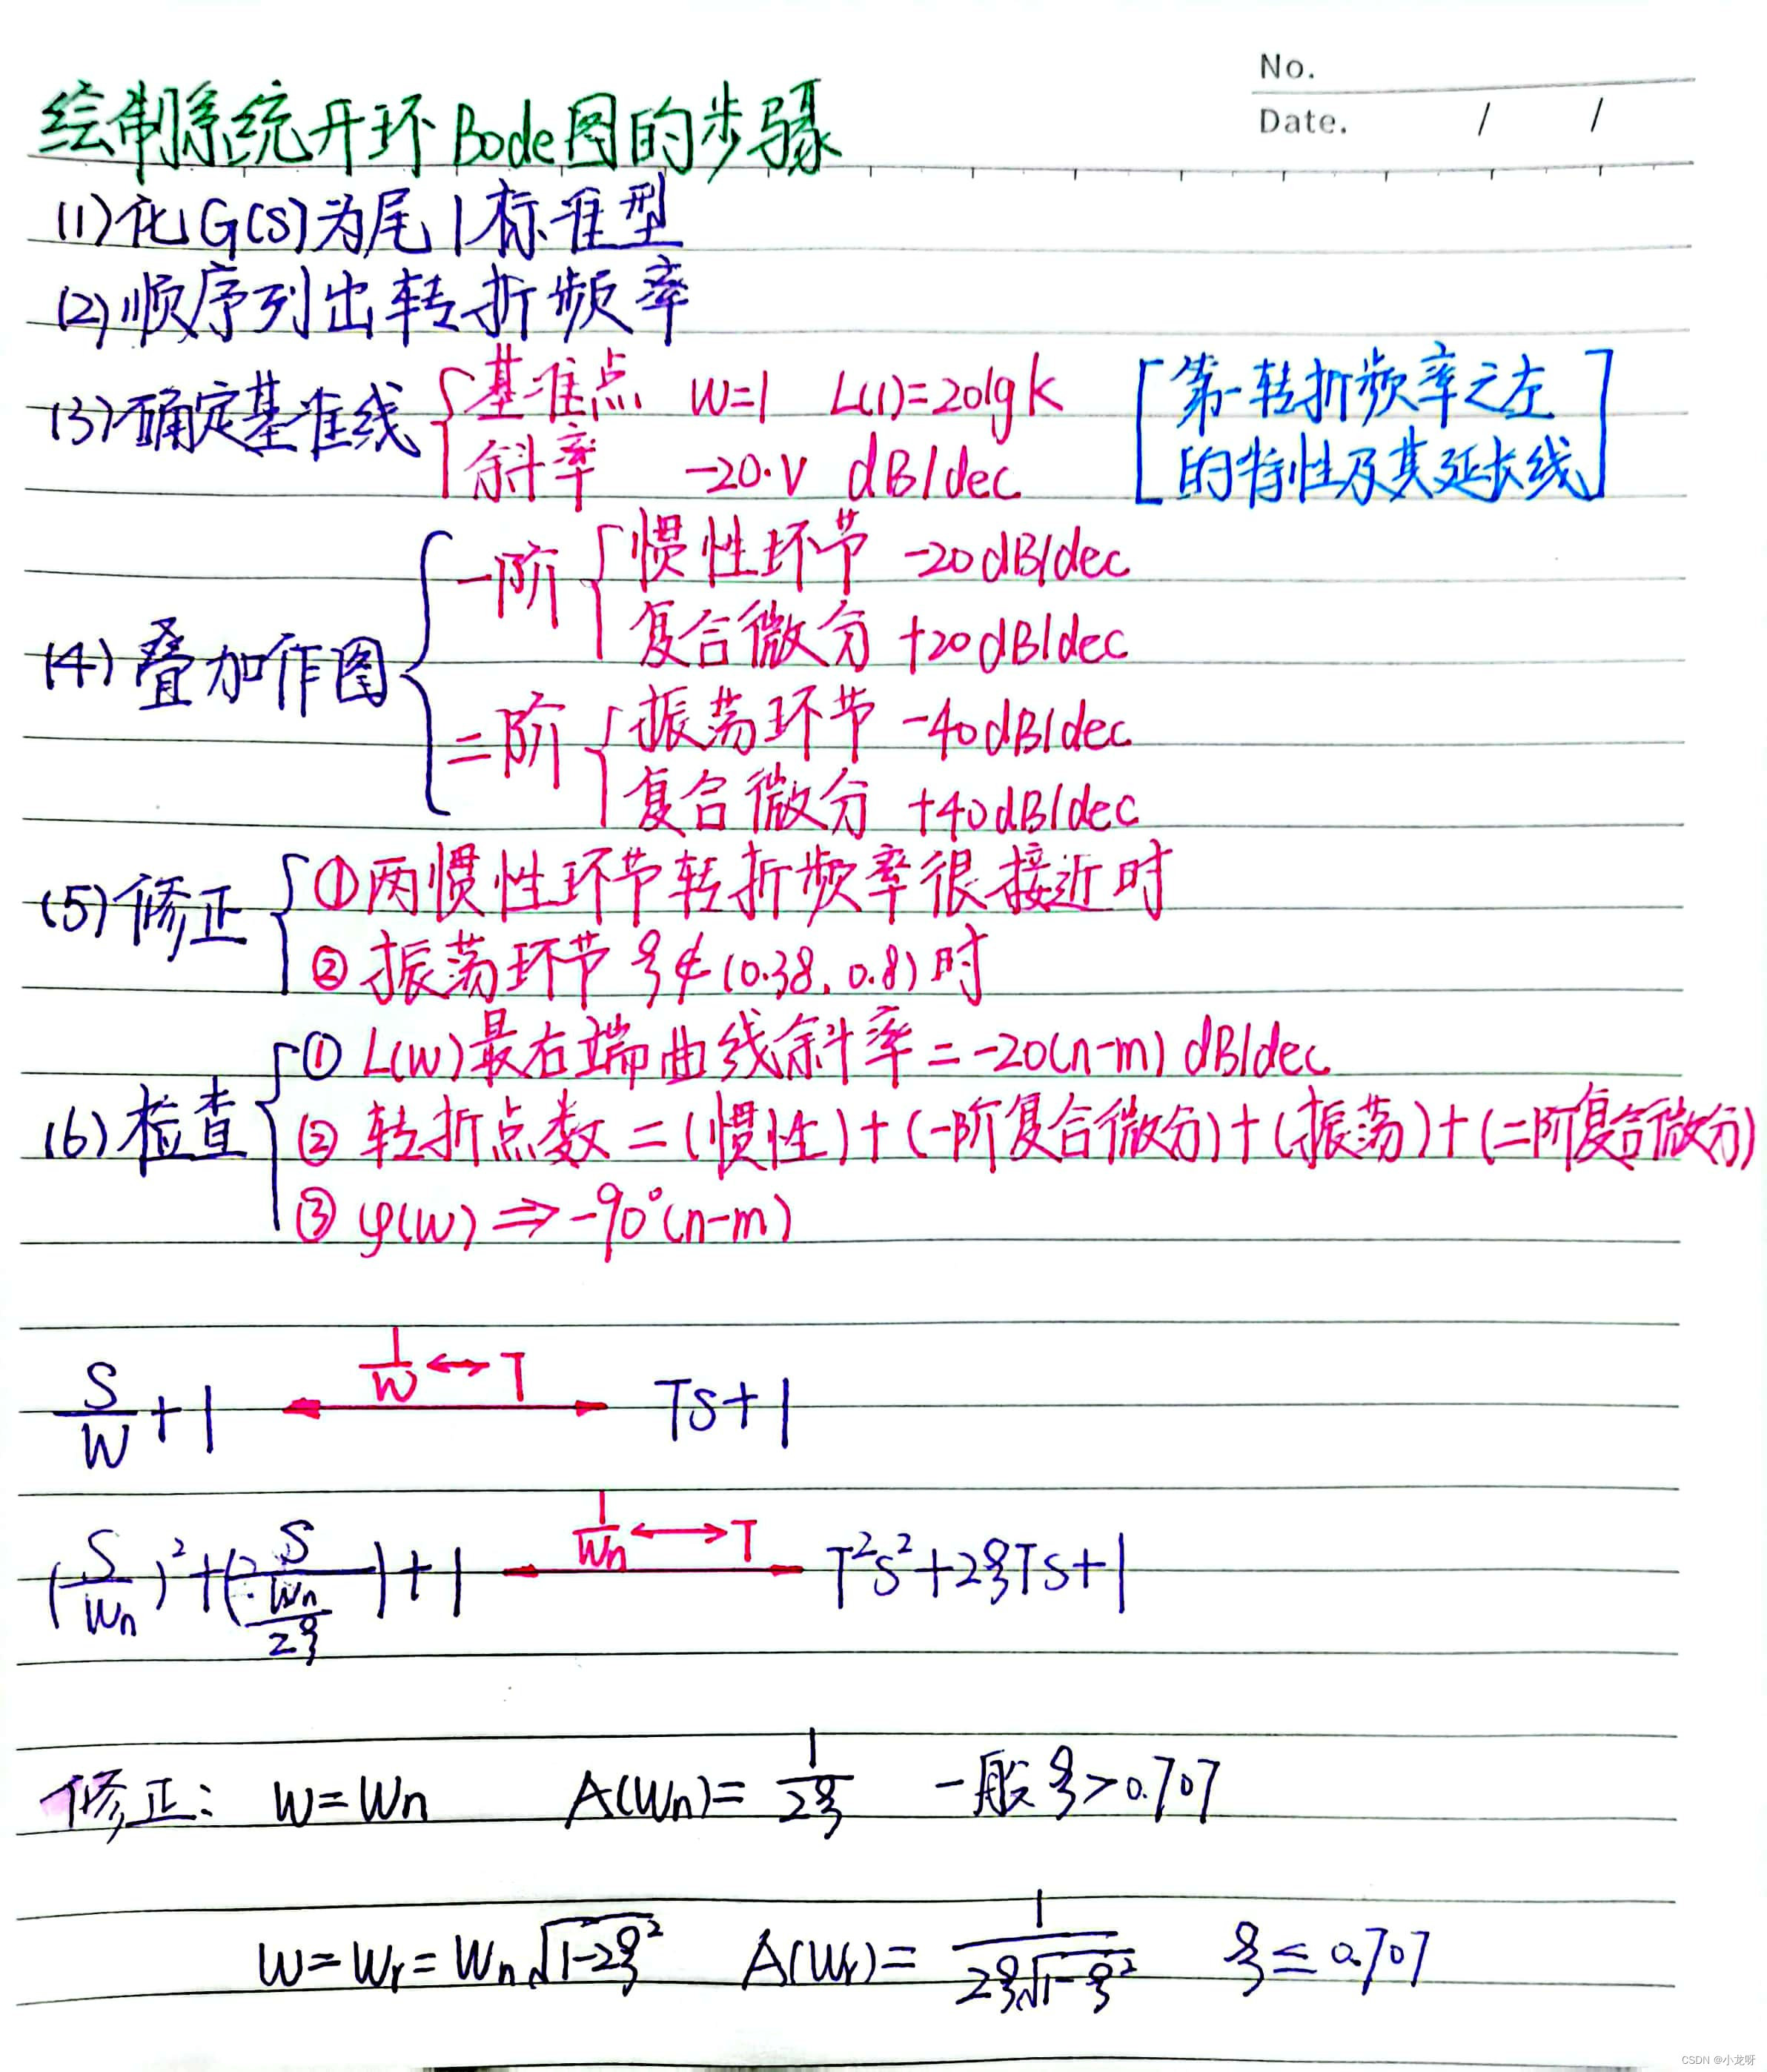 No.
Date. / /
绘制系统开环Bode图的步骤
(1)化G(S)为尾1标准型
(2)顺序列出转折频率
(3)确定基准线 { 基准点 W=1 L(1)=20lgk [第一转折频率之左
斜率 -20·V dB/dec 的特性及其延长线]
(4)叠加作图 { 一阶 { 惯性环节 -20dB/dec
复合微分 +20dB/dec
二阶 { 振荡环节 -40dB/dec
复合微分 +40dB/dec
(5)修正 { ①两惯性环节转折频率很接近时
②振荡环节 ξ∉(0.38, 0.8)时
(6)检查 { ① L(W)最右端曲线斜率=-20(n-m) dB/dec
② 转折点数=(惯性)+(一阶复合微分)+(振荡)+(二阶复合微分)
③ φ(W) ⇒ -90°(n-m)
S/W+1 1/W↔T TS+1
(S/Wn)²+(S/(Wn/2ξ))+1 1/Wn↔T T²S²+2ξTS+1
修正: W=Wn A(Wn)=1/2ξ 一般ξ>0.707
W=Wr=Wn√(1-2ξ²) A(Wr)=1/(2ξ√(1-ξ²)) ξ≤0.707
CSDN @小龙呀